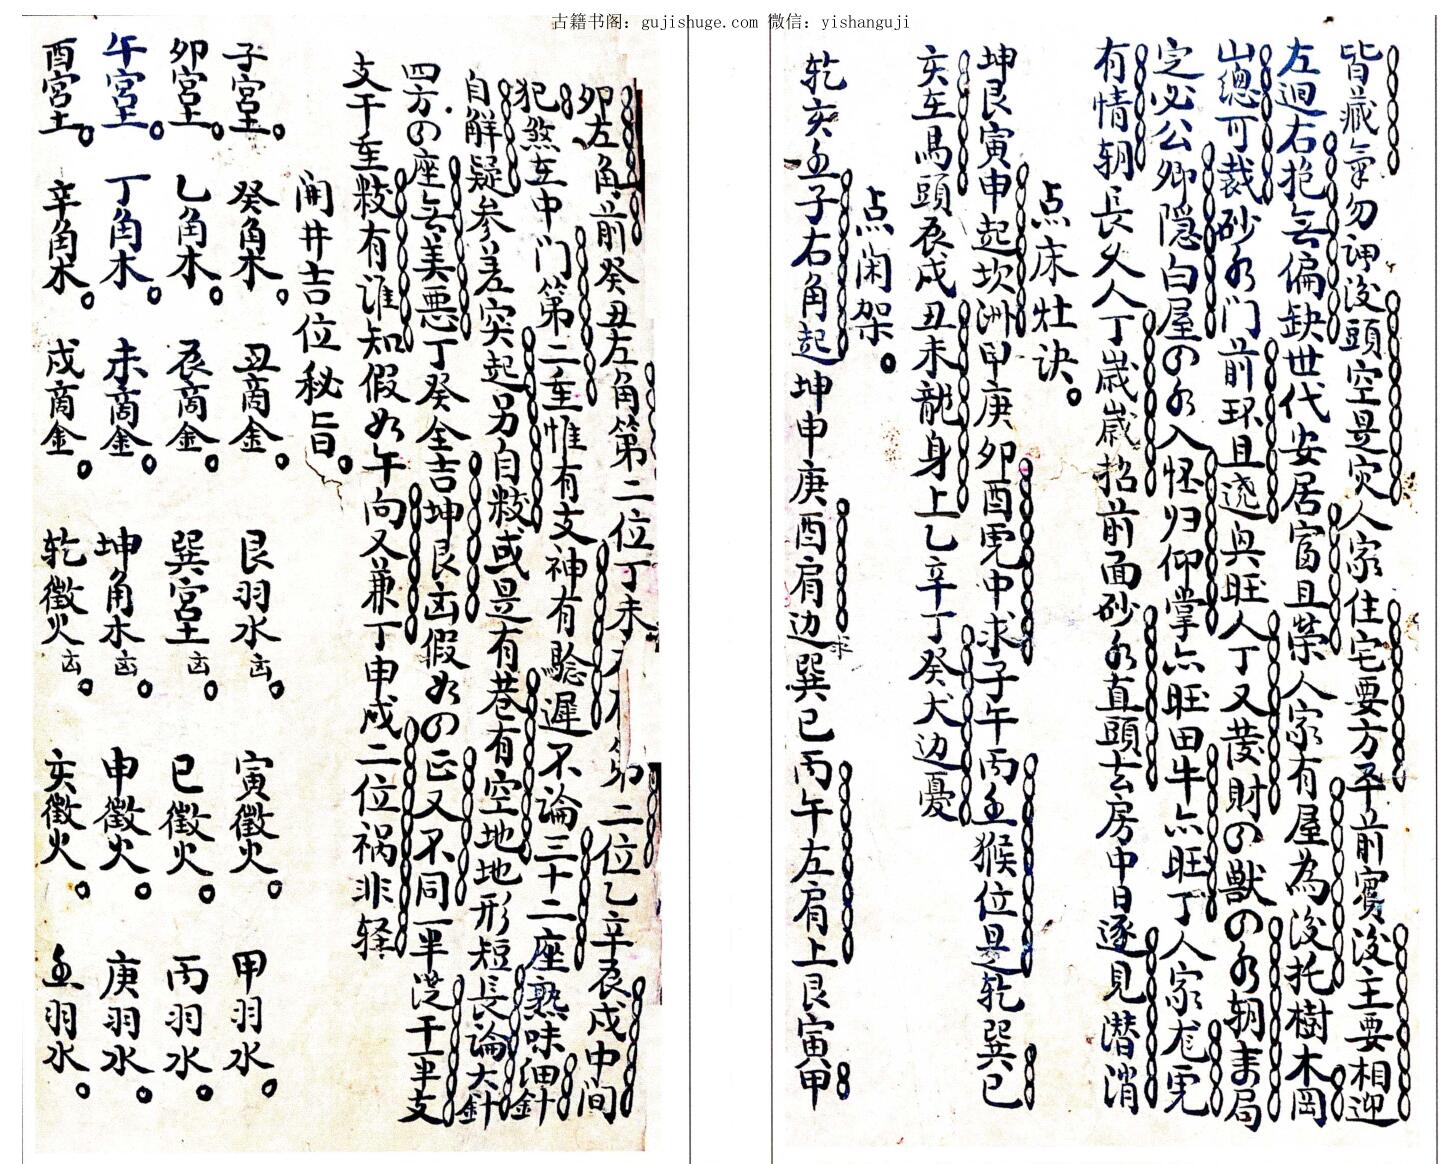 古籍书阁：gujishuge.com 微信：yishanguji
皆藏氣勿呷没頭空是灾人家住宅要方平前賓没主要相迎
左迴右抱旡偏缺世代安居富且荣人家有屋為没托樹木岡
山總可裁砂水门前环且遶興旺人丁又發財の獣の水朝来局
定必公卿隐白屋の水入怪归仰掌亦旺田牛亦旺丁人家龙虎
有情朝長久人丁歲歲招前面砂水直頭去房中日逐見潜消
点床灶诀
坤艮寅申起坎洲甲庚卯酉虎中求子午丙壬猴位是乾巽巳
亥在馬頭辰戌丑未龍身上乙辛丁癸犬边憂
点闲架
乾亥壬子右角起坤申庚酉肩边巽巳丙午左肩上艮寅甲
求
卯左角前癸丑左角第二位丁未 第二位乙辛辰戌中间
犯煞在中门第二重惟有支神有驗遲不論三十二座熟味细針
自解疑参差突起另自敉或是有巷有空地地形短長論大針
四方の座旡美悪丁癸全吉坤艮凶假如の正又不同一半浸干一半支
支干重敉有谁知假如午向又兼丁申成二位祸非轻
開井吉位秘旨
子宫土 癸角木 丑商金 艮羽水凶 寅徵火 甲羽水
卯宫土 乙角木 辰商金 巽宫土凶 巳徵火 丙羽水
午宫土 丁角木 未商金 坤角木凶 申徵火 庚羽水
酉宫土 辛角木 戌商金 乾徵火凶 亥徵火 壬羽水